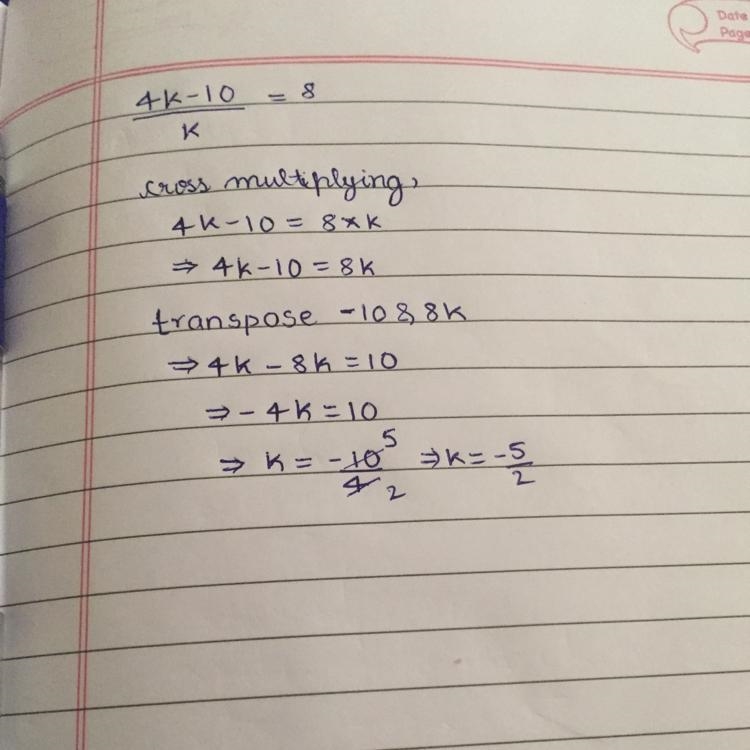 Date
Page
4k-10 = 8
k
cross multiplying,
4k-10 = 8×k
⇒ 4k-10 = 8k
transpose -10 & 8k
⇒ 4k - 8k = 10
⇒ - 4k = 10
⇒ k = -10 5 ⇒ k = -5
4 2 2